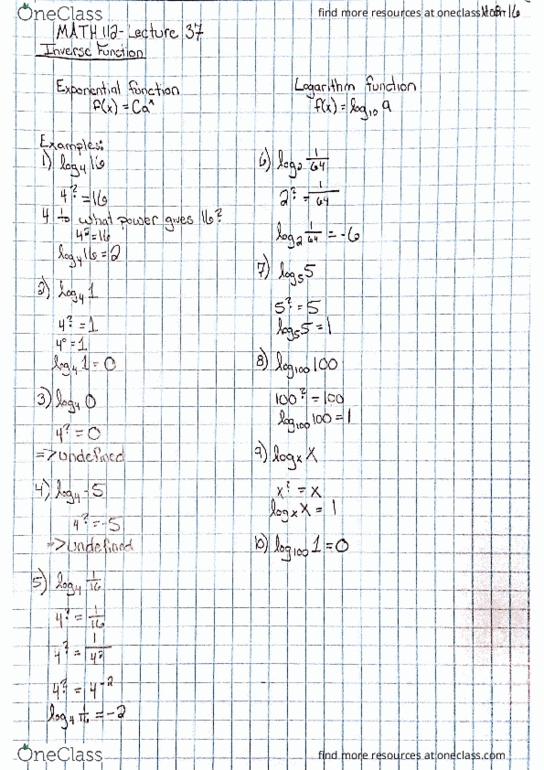 OneClass
find more resources at oneclass
MATH 112- Lecture 37
Inverse Function
Exponential function
f(x) = Ca^x
Logarithm function
f(x) = log₁₀ a
Examples:
1) log₄16
4^? = 16
4 to what power gives 16?
4² = 16
log₄16 = 2
2) log₄1
4^? = 1
4⁰ = 1
log₄1 = 0
3) log₄0
4^? = 0
=> undefined
4) log₄-5
4^? = -5
=> undefined
5) log₄ 1/16
4^? = 1/16
4^? = 1/4²
4^? = 4⁻²
log₄ 1/16 = -2
6) log₂ 1/64
2^? = 1/64
log₂ 1/64 = -6
7) log₅5
5^? = 5
log₅5 = 1
8) log₁₀₀100
100^? = 100
log₁₀₀100 = 1
9) logₓX
x^? = x
logₓX = 1
10) log₁₀₀1 = 0
OneClass
find more resources at oneclass.com